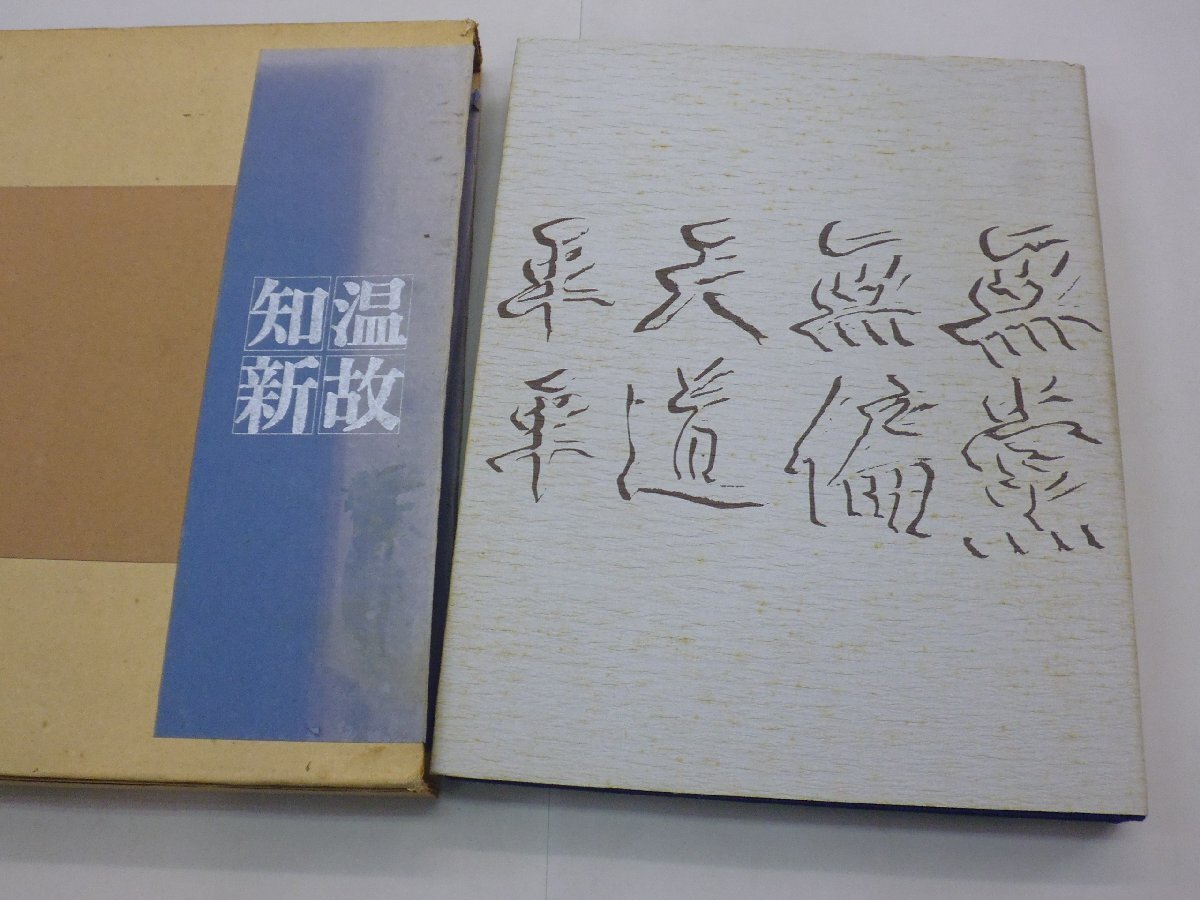 温故
知新
無黨
無偏
天道
平平